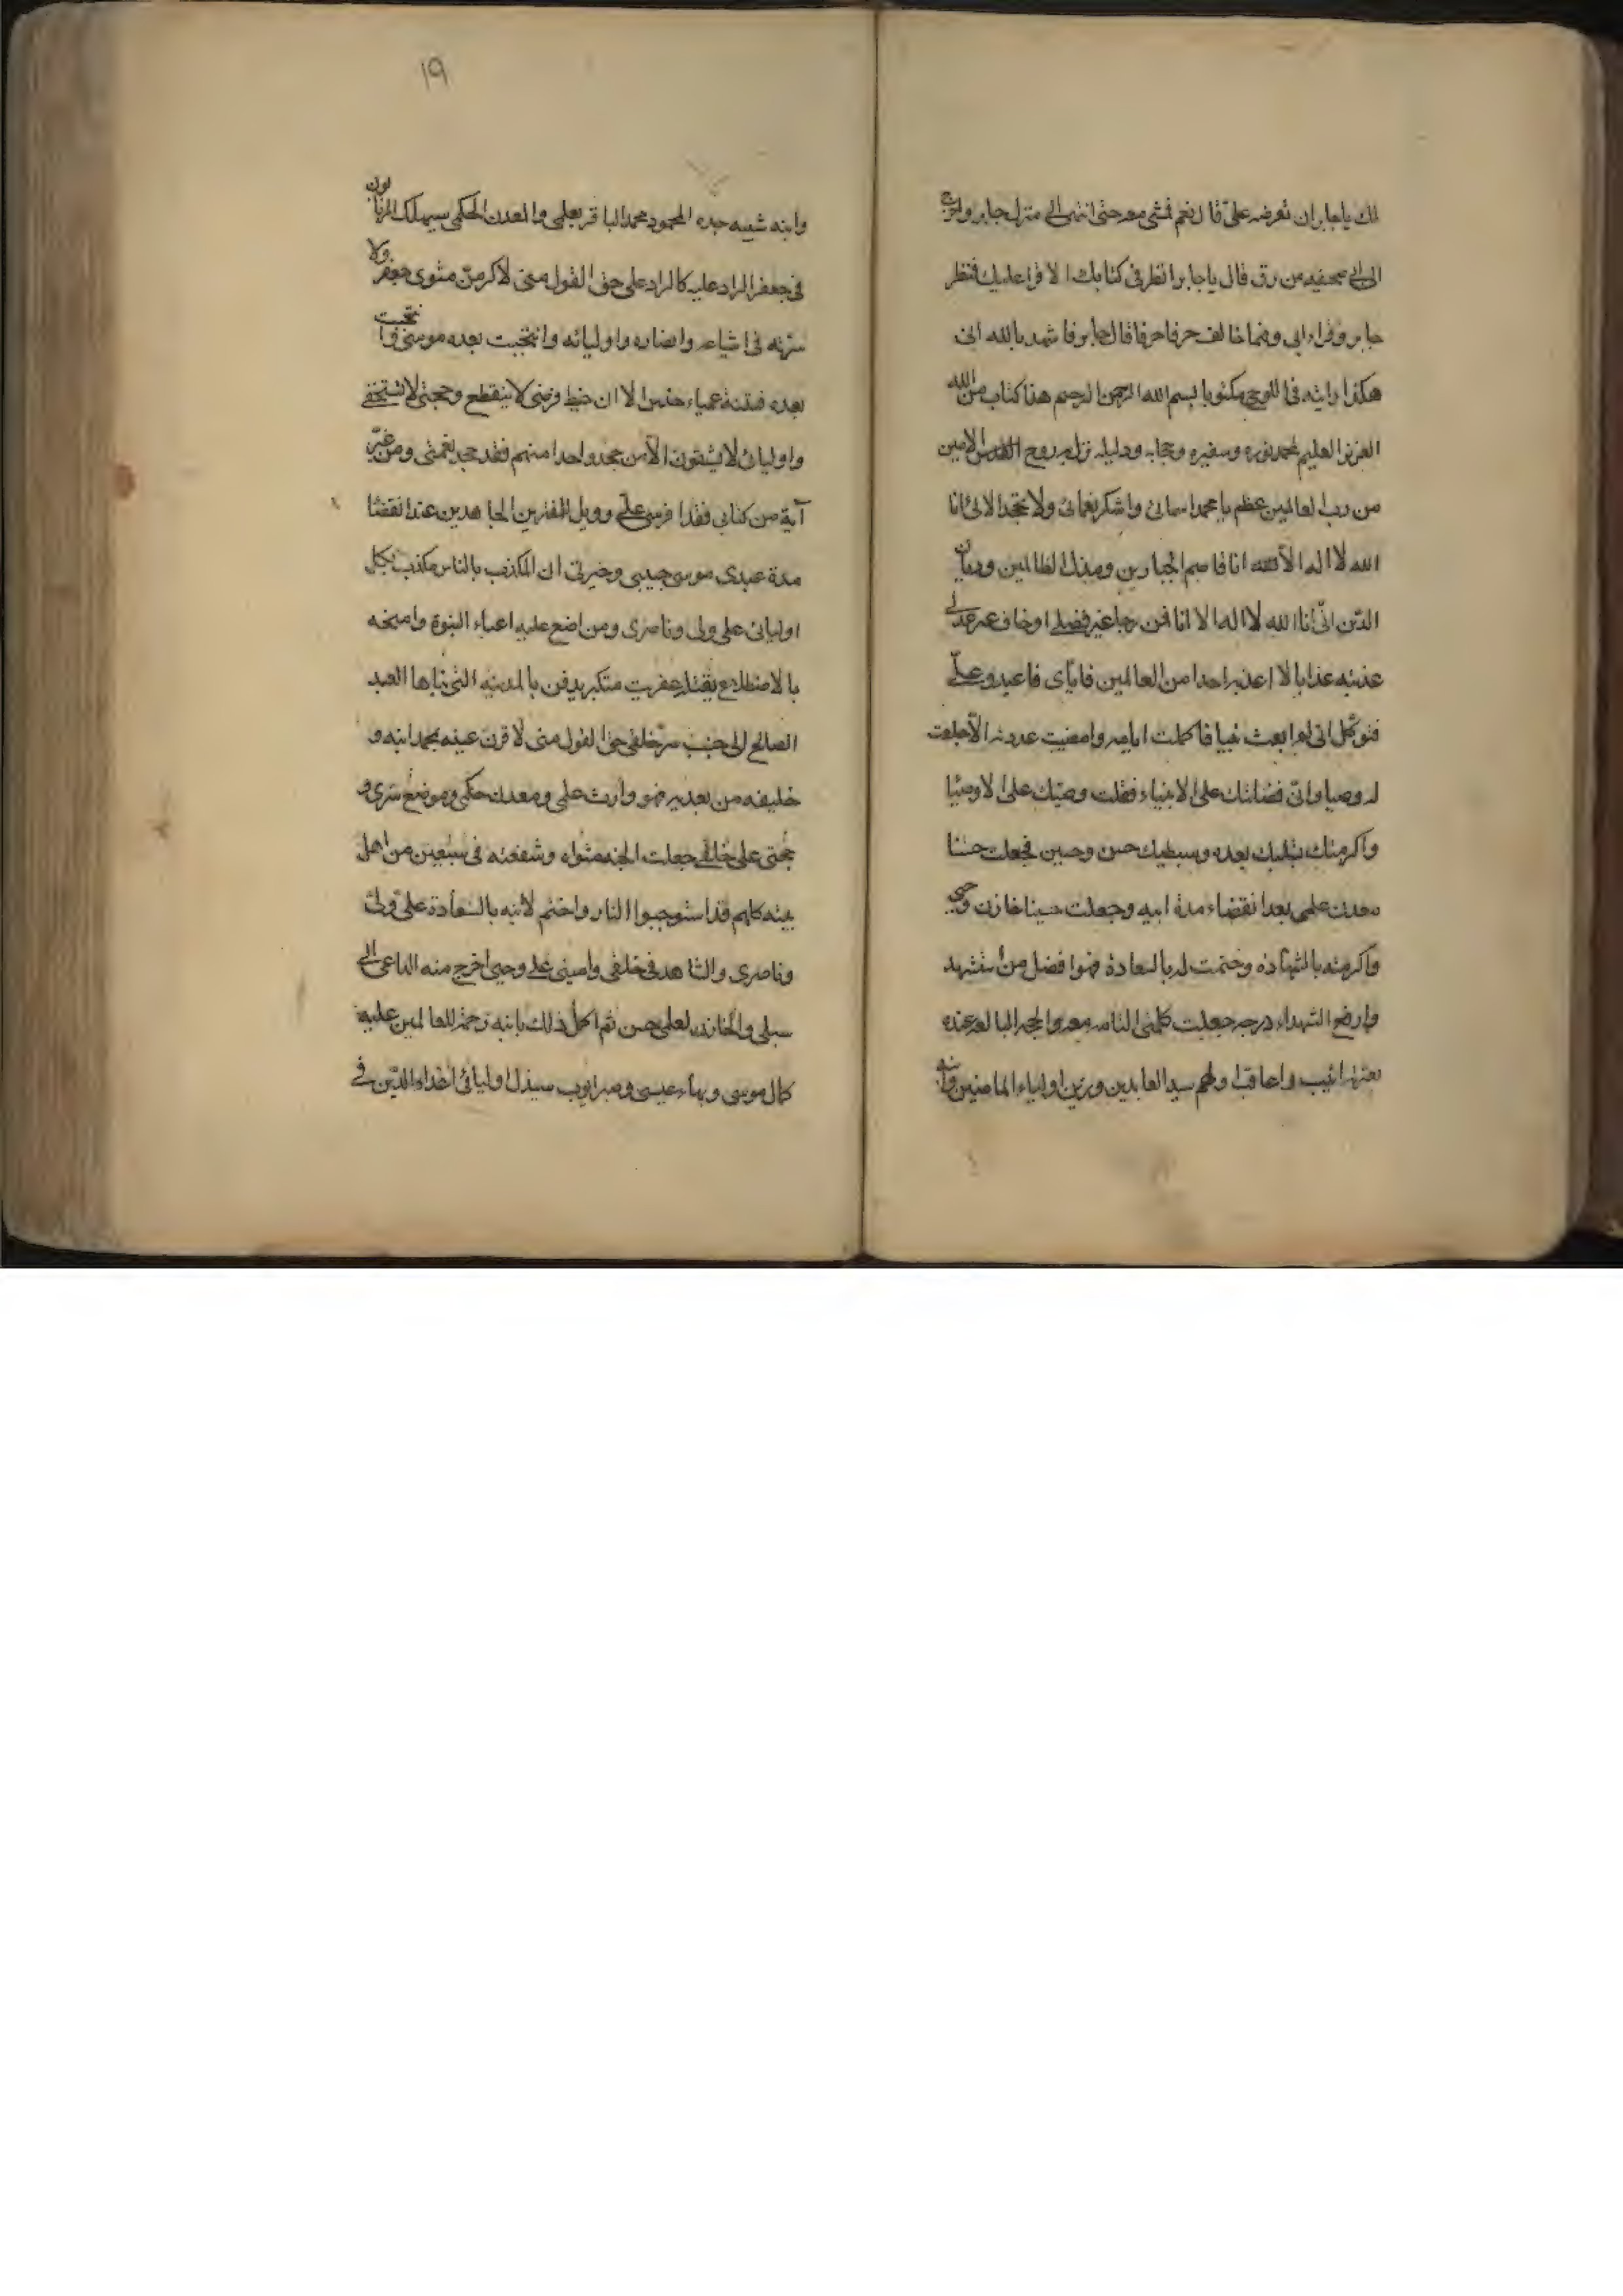 لك يا جابر ان تعرضه علىّ قال نعم فمشى معه حتى انتهى الى منزل جابر واخرج
الى ابى صحيفه من رق قال يا جابر انظر فى كتابك لا قرا عليك فنظر
جابر وقراه ابى وفما خالف حرفا حرفا قال جابر فاشهد بالله انى
هكذا رايته فى اللوح مكتوبا بسم الله الرحمن الرحيم هذا كتاب من الله
العزيز العليم لمحمد نوره وسفيره وحجابه ودليله نزل به روح القدس الامين
من رب العالمين عظم يا محمد اسمائى واشكر نعمائى ولا تجحد الائى انا
الله لا اله الا انا قاصم الجبارين ومذل الظالمين وديان
الدّين انّى انا الله لا اله الا انا فمن رجا غير فضلى او خاف غير عدلى
عذبته عذابا لا اعذبه احدا من العالمين فايّاى فاعبد وعلىّ
فتوكّل انى لم ابعث نبيا فاكملت ايامه وامضيت عدوته الّا جعلت
له وصيا وانّى فضلتك على الانبياء وفضلت وصيّك على الاوصيا
واكرمتك بشبليك بعده وسبطيك حسن وحسين فجعلت حسنا
معدن علمى بعد انقضاء مدة ابيه وجعلت حسينا خازن وحيى
واكرمته بالشهادة وختمت له بالسعادة فهو افضل من استشهد
وارفع الشهداء درجه جعلت كلمتى التامه معه والحجه البالغه عنده
بعترته اثيب واعاقب اولهم سيد العابدين وزين اولياء الماضين وابنه
وابنه شبيه جده المحمود محمد الباقر بعلمى والمعدن لحكمى سيهلك المرتابون
فى جعفر الراد عليه كالراد على حق القول منى لاكرمنّ مثوى جعفر ولا
سرنه فى اشياعه وانصاره واوليائه وانتجبت بعده موسى وانتجبت
بعده فتنة عمياء حندس لا ان خيط فرضى لا ينقطع وحجتى لا تستخفى
واوليائى لا يشقون الا من جحد واحدا منهم فقد جحد نعمتى ومن غيّر
آية من كتابى فقد افترى علىّ وويل للمفترين الجاحدين عند انقضا
مدة عبدى موسى حبيبى وخيرتى ان المكذب بالثامن مكذب بكل
اوليائى على ولى وناصرى ومن اضع عليه اعباء النبوة وامنحه
بالاضطلاع يقتله عفريت متكبر يدفن بالمدينه التى بناها العبد
الصالح الى جنب شر خلقى حق القول منى لاقرن عينه بمحمد ابنه و
خليفه من بعده فهو وارث علمى ومعدن حكمى وموضع سرى و
حجتى على خلقى جعلت الجنه مثواه وشفعته فى سبعين من اهل
بيته كلهم قد استوجبوا النار واختم لابنه بالسعادة على ولى
وناصرى والشاهد فى خلقى وامينى على وحيى اخرج منه الداعى الى
سبيلى والخازن لعلمى حسن ثم اكمل ذلك بابنه رحمة للعالمين عليه
كمال موسى وبهاء عيسى وصبر ايوب سيذل اوليائى اعداء الدّين فى
١٩